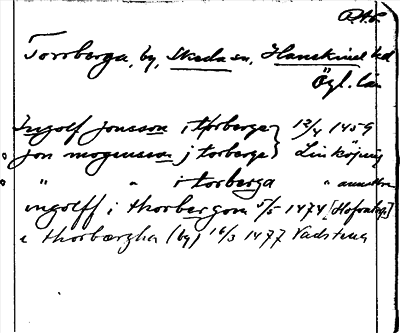 Torrberga, by, Skeda sn, Hanekind hd
Ögl. län
Ingolf jonsson i thorberge } 12/4 1459
jon mogensson j torberge } Linköping
" " i torberga "
ingolff i thorbergom 5/5 1474
i thorbærgha (by) 16/3 1477 Vadstena